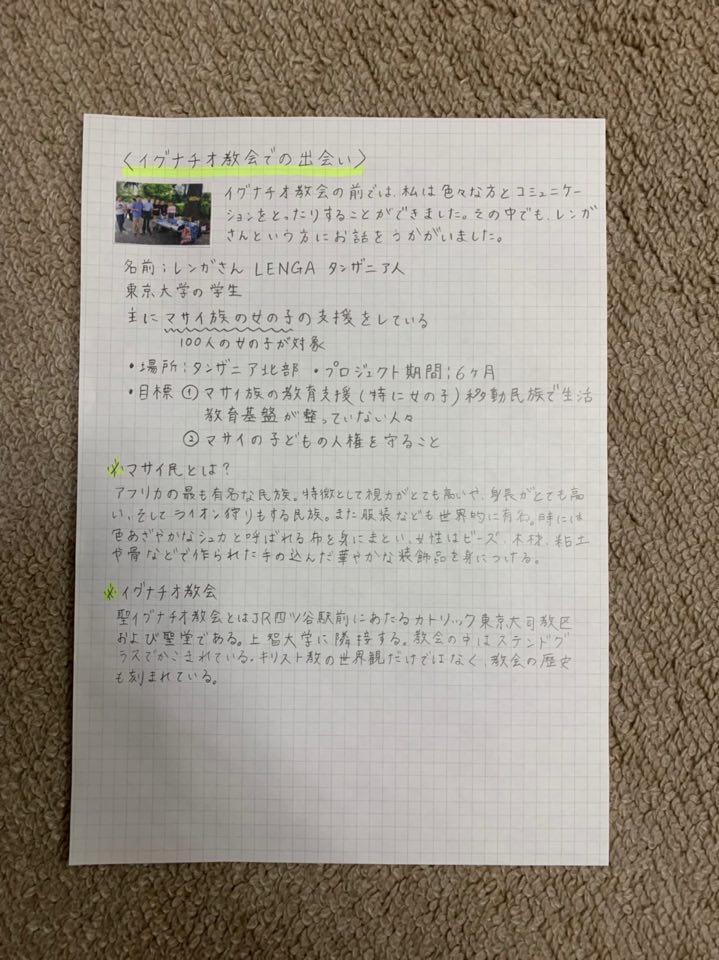 〈イグナチオ教会での出会い〉
イグナチオ教会の前では、私は色々な方とコミュニケー
ションをとったりすることができました。その中でも、レンガ
さんという方にお話をうかがいました。
名前；レンガさん LENGA タンザニア人
東京大学の学生
主にマサイ族の女の子の支援をしている
100人の女の子が対象
・場所；タンザニア北部 ・プロジェクト期間；6ヶ月
・目標 ① マサイ族の教育支援（特に女の子）移動民族で生活
教育基盤が整っていない人々
② マサイの子どもの人権を守ること
※マサイ民とは？
アフリカの最も有名な民族。特徴として視力がとても高いや、身長がとても高
い、そしてライオン狩りもする民族。また服装なども世界的に有名。時には
色あざやかなシュカと呼ばれる布を身にまとい、女性はビーズ、木材、粘土
や骨などで作られた手の込んだ華やかな装飾品を身につける。
※イグナチオ教会
聖イグナチオ教会とはJR四ツ谷駅前にあたるカトリック東京大司教区
および聖堂である。上智大学に隣接する。教会の中はステンドグ
ラスでかこまれている。キリスト教の世界観だけではなく、教会の歴史
も刻まれている。